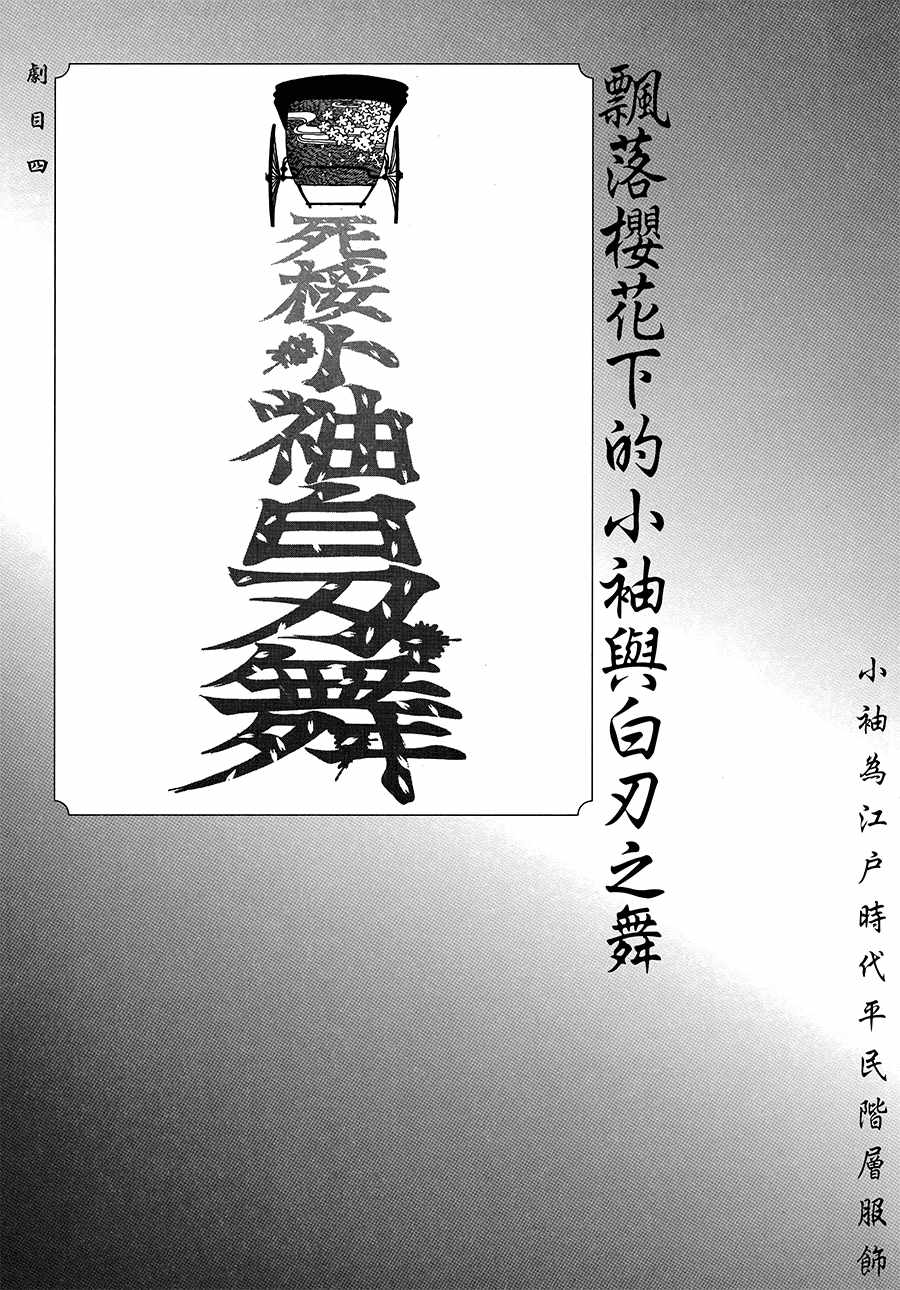 小袖為江戶時代平民階層服飾
飄落櫻花下的小袖與白刃之舞
死桜小袖白刃舞
劇目四